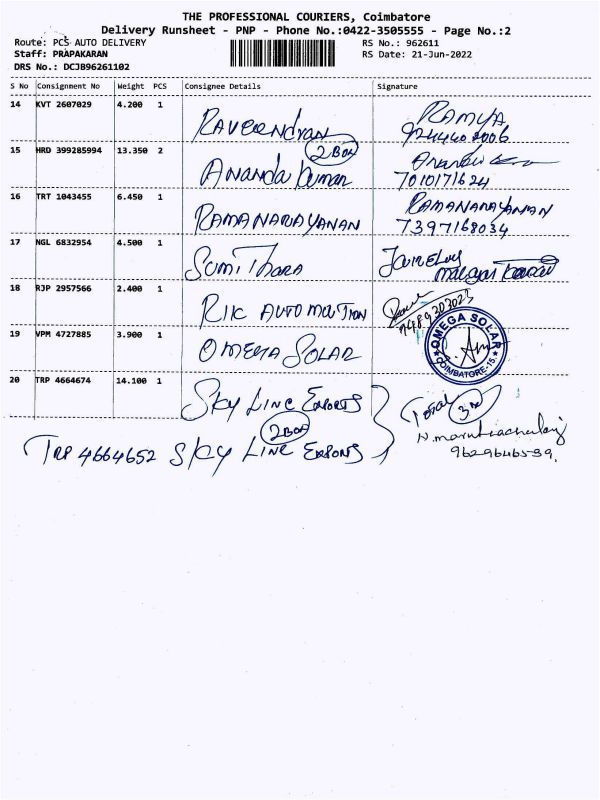 THE PROFESSIONAL COURIERS, Coimbatore
Delivery Runsheet - PNP - Phone No.:0422-3505555 - Page No.:2
Route: PCS AUTO DELIVERY
RS No.: 962611
Staff: PRAPAKARAN
RS Date: 21-Jun-2022
DRS No.: DCJB96261102
S No Consignment No Weight PCS Consignee Details Signature
14 KVT 2607029 4.200 1
RAVEENDRAN RAMYA
9244402006
15 HRD 399285994 13.350 2
2 Box
Ananda Kumar Anandu
7010171624
16 TRT 1043455 6.450 1
RAMANARAYANAN RAMANARAYANAN
7397168034
17 NGL 6832954 4.500 1
SUMITHARA
18 RJP 2957566 2.400 1
RIK AUTOMATION 7489303023
19 VPM 4727885 3.900 1
OMEGA SOLAR
OMEGA SOLAR
COIMBATORE-15
20 TRP 4664674 14.100 1
SKY LINE EXPORTS Total 3
2 Box
TRP 4664652 SKY LINE EXPORTS
9629646539.